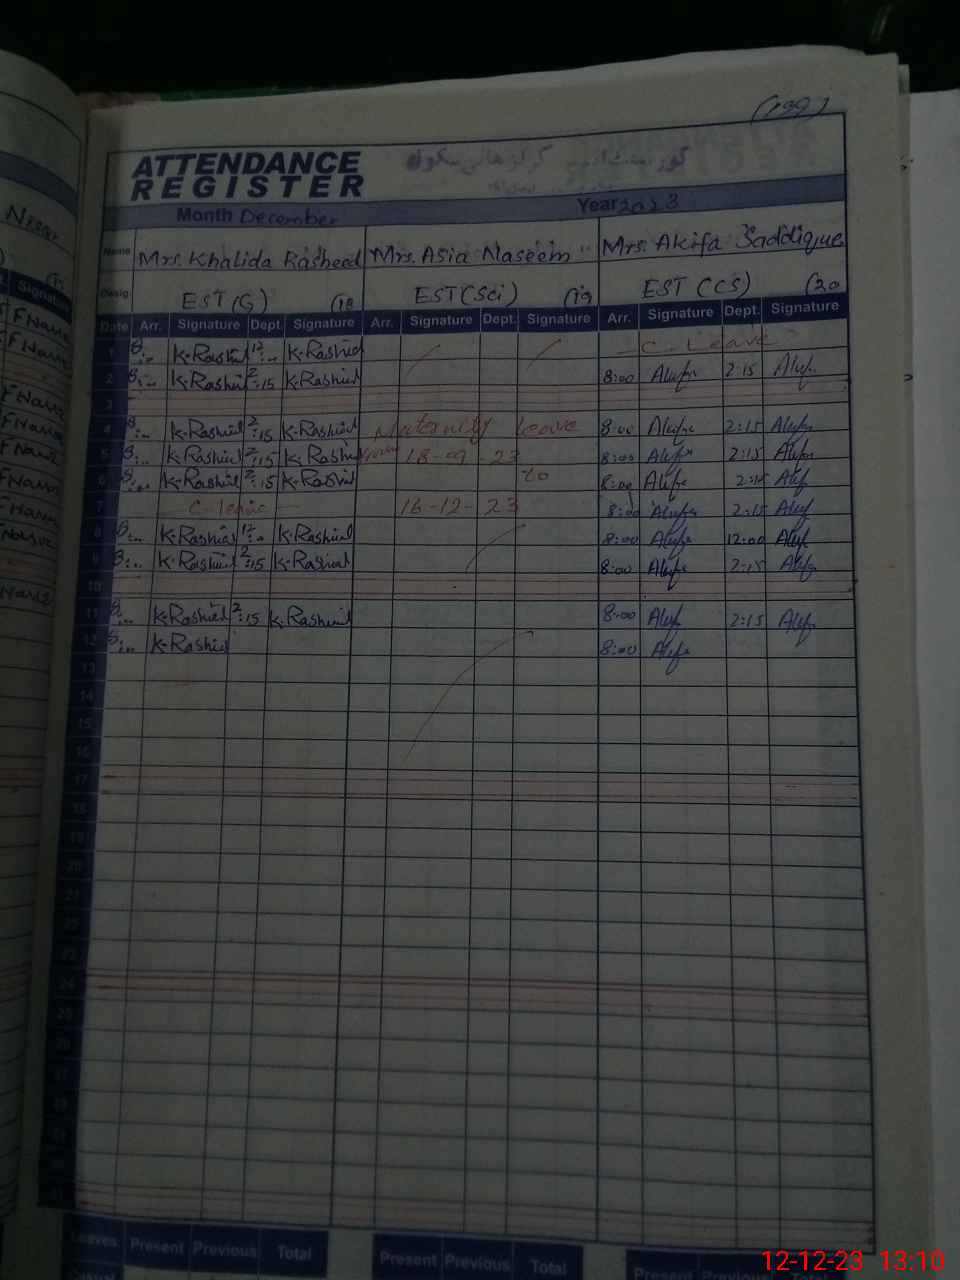 (199)
ATTENDANCE
REGISTER
گورنمنٹ گرلز ہائی سکول
Month December Year 2023
Name Mrs. Khalida Rasheed Mrs. Asia Naseem Mrs. Akifa Saddique
Desig EST (G) (18 EST (Sci) (19 EST (CS) (20
Date Arr. Signature Dept. Signature Arr. Signature Dept. Signature Arr. Signature Dept. Signature
1 8:00 K.Rashid 12:00 K.Rashid C-Leave
2 8:00 K.Rashid 2:15 K.Rashid 8:00 Akifa 2:15 Akifa
3
4 8:00 K.Rashid 2:15 K.Rashid Maternity leave 8:00 Akifa 2:15 Akifa
5 8:00 K.Rashid 2:15 K.Rashid 18-09-23 8:00 Akifa 2:15 Akifa
6 8:00 K.Rashid 2:15 K.Rashid to 8:00 Akifa 2:15 Akifa
7 C-leave 16-12-23 8:00 Akifa 2:15 Akifa
8 8:00 K.Rashid 12:00 K.Rashid 8:00 Akifa 12:00 Akifa
9 8:00 K.Rashid 2:15 K.Rashid 8:00 Akifa 2:15 Akifa
10
11 8:00 K.Rashid 2:15 K.Rashid 8:00 Akifa 2:15 Akifa
12 8:00 K.Rashid 8:00 Akifa
13
14
15
16
17
18
19
20
21
22
23
24
25
26
27
28
29
30
31
Leaves Present Previous Total Present Previous Total Present Previous
12-12-23 13:10